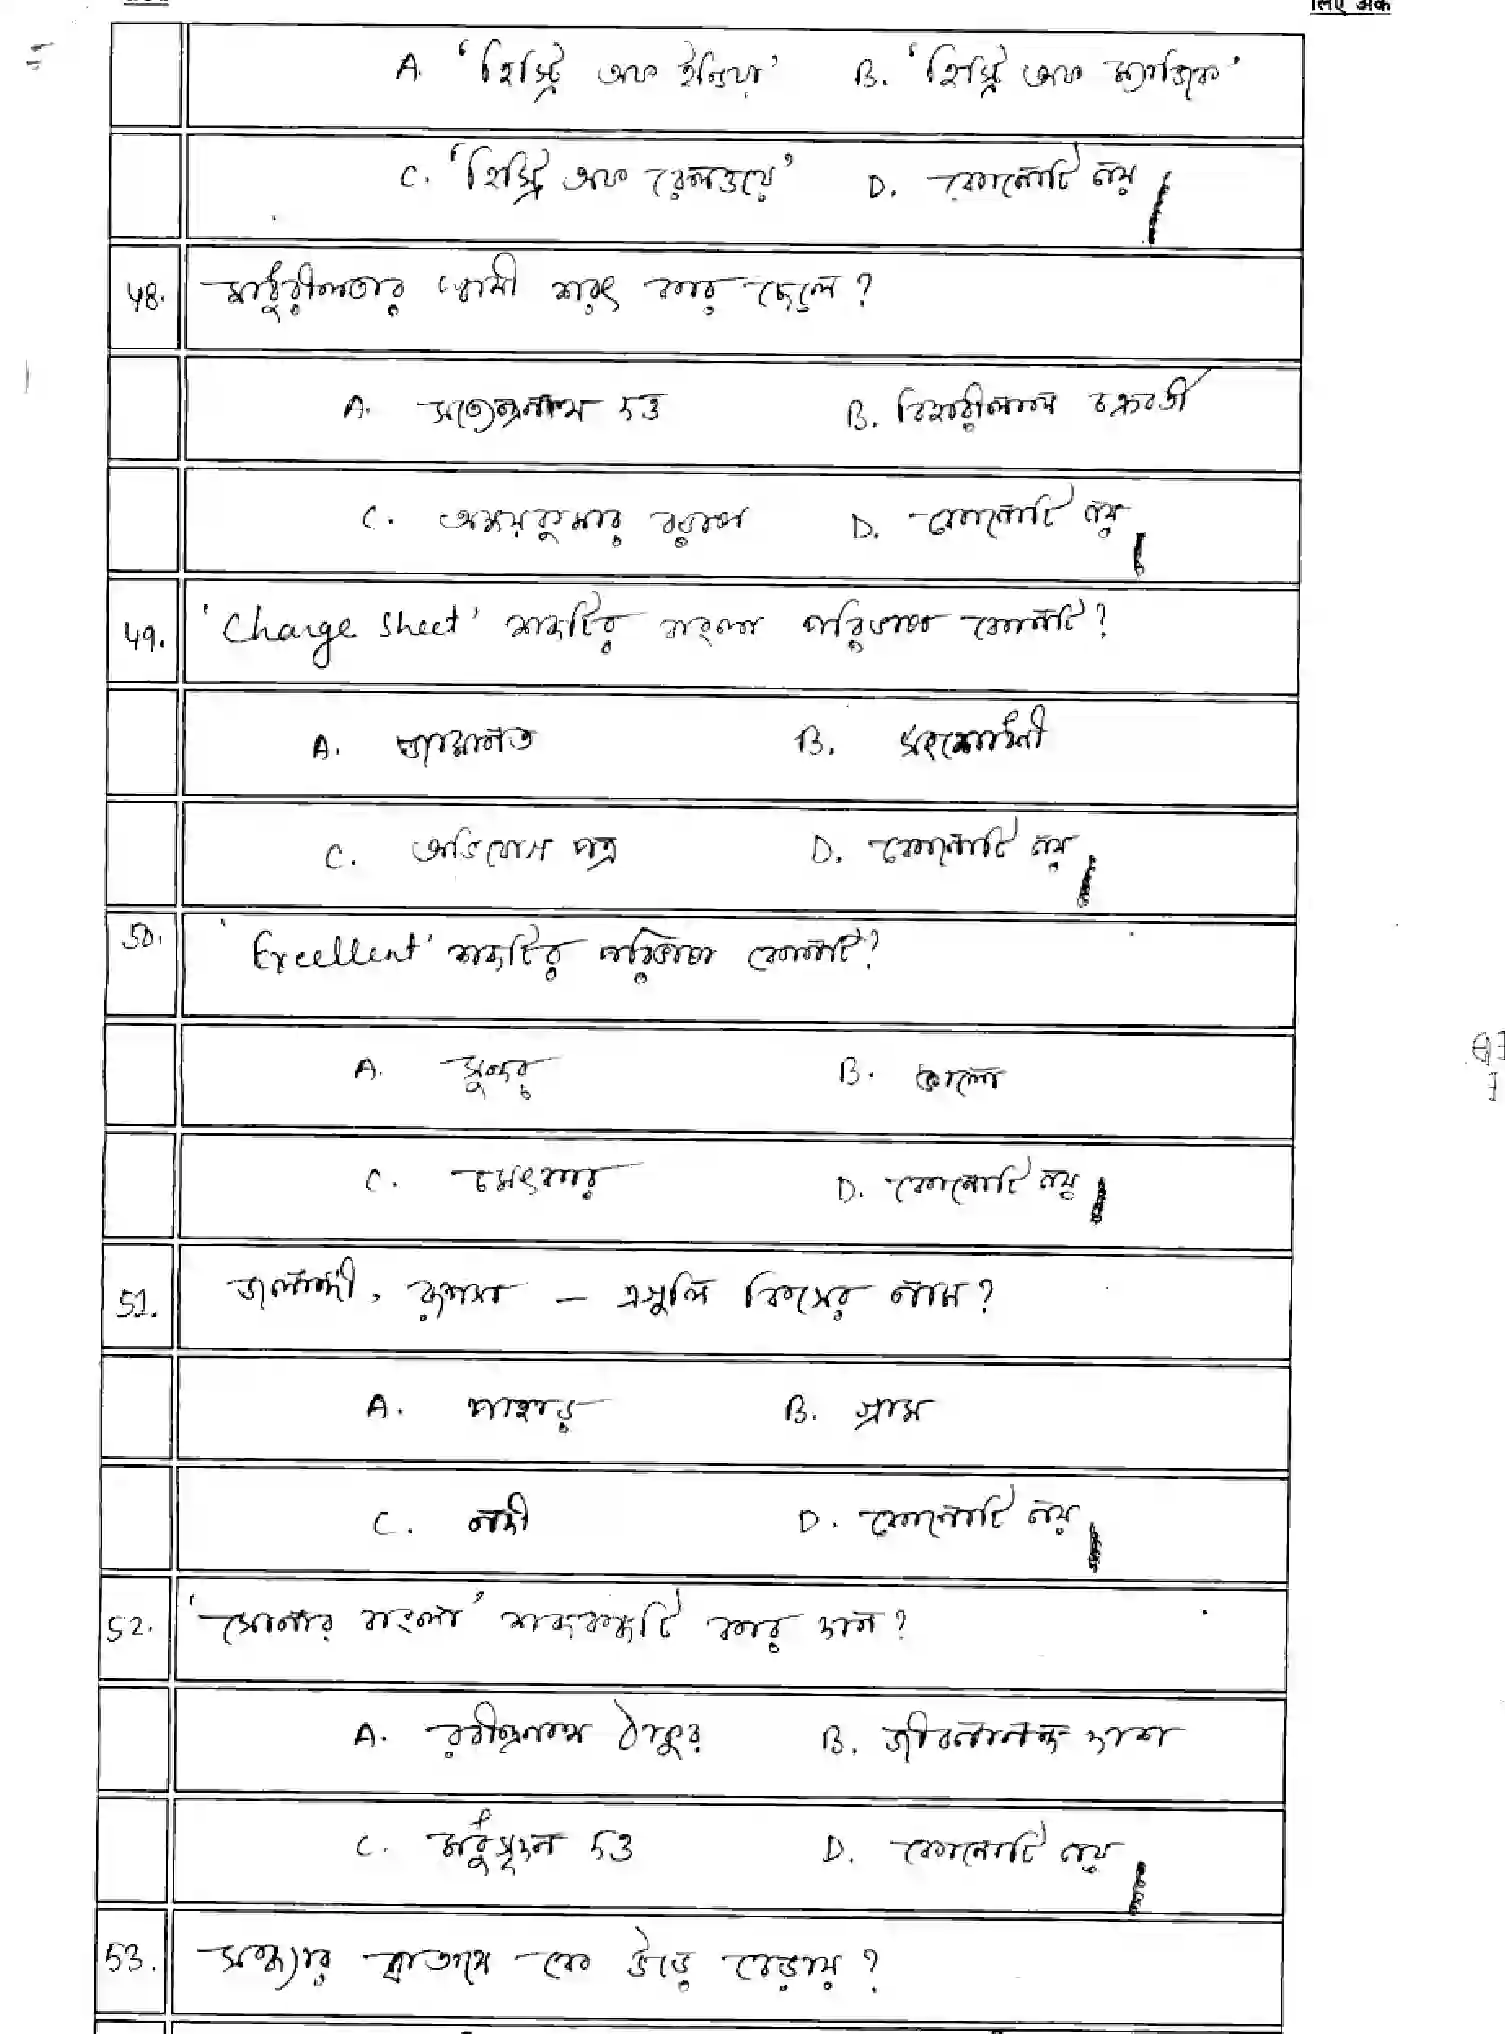 लिए अंक
A. 'হিস্ট্রি অফ ইন্ডিয়া' B. 'হিস্ট্রি অফ ম্যাজিক'
C. 'হিস্ট্রি অফ রেলওয়ে' D. কোনোটি নয়
48. মাধুরীলতার স্বামী শরৎ কার ছেলে?
A. সত্যেন্দ্রনাথ দত্ত B. বিহারীলাল চক্রবর্তী
C. অক্ষয়কুমার বড়াল D. কোনোটি নয়
49. 'Charge Sheet' শব্দটির বাংলা পরিভাষা কোনটি?
A. জামানত B. সংশোধনী
C. অভিযোগ পত্র D. কোনোটি নয়
50. 'Excellent' শব্দটির পরিভাষা কোনটি?
A. সুন্দর B. ভালো
C. চমৎকার D. কোনোটি নয়
51. জলাঙ্গী, রূপসা – এগুলি কিসের নাম?
A. পাহাড় B. গ্রাম
C. নদী D. কোনোটি নয়
52. 'সোনার বাংলা' শব্দবন্ধটি কার দান?
A. রবীন্দ্রনাথ ঠাকুর B. জীবনানন্দ দাশ
C. মধুসূদন দত্ত D. কোনোটি নয়
53. সন্ধ্যার বাতাসে কে উড়ে বেড়ায়?